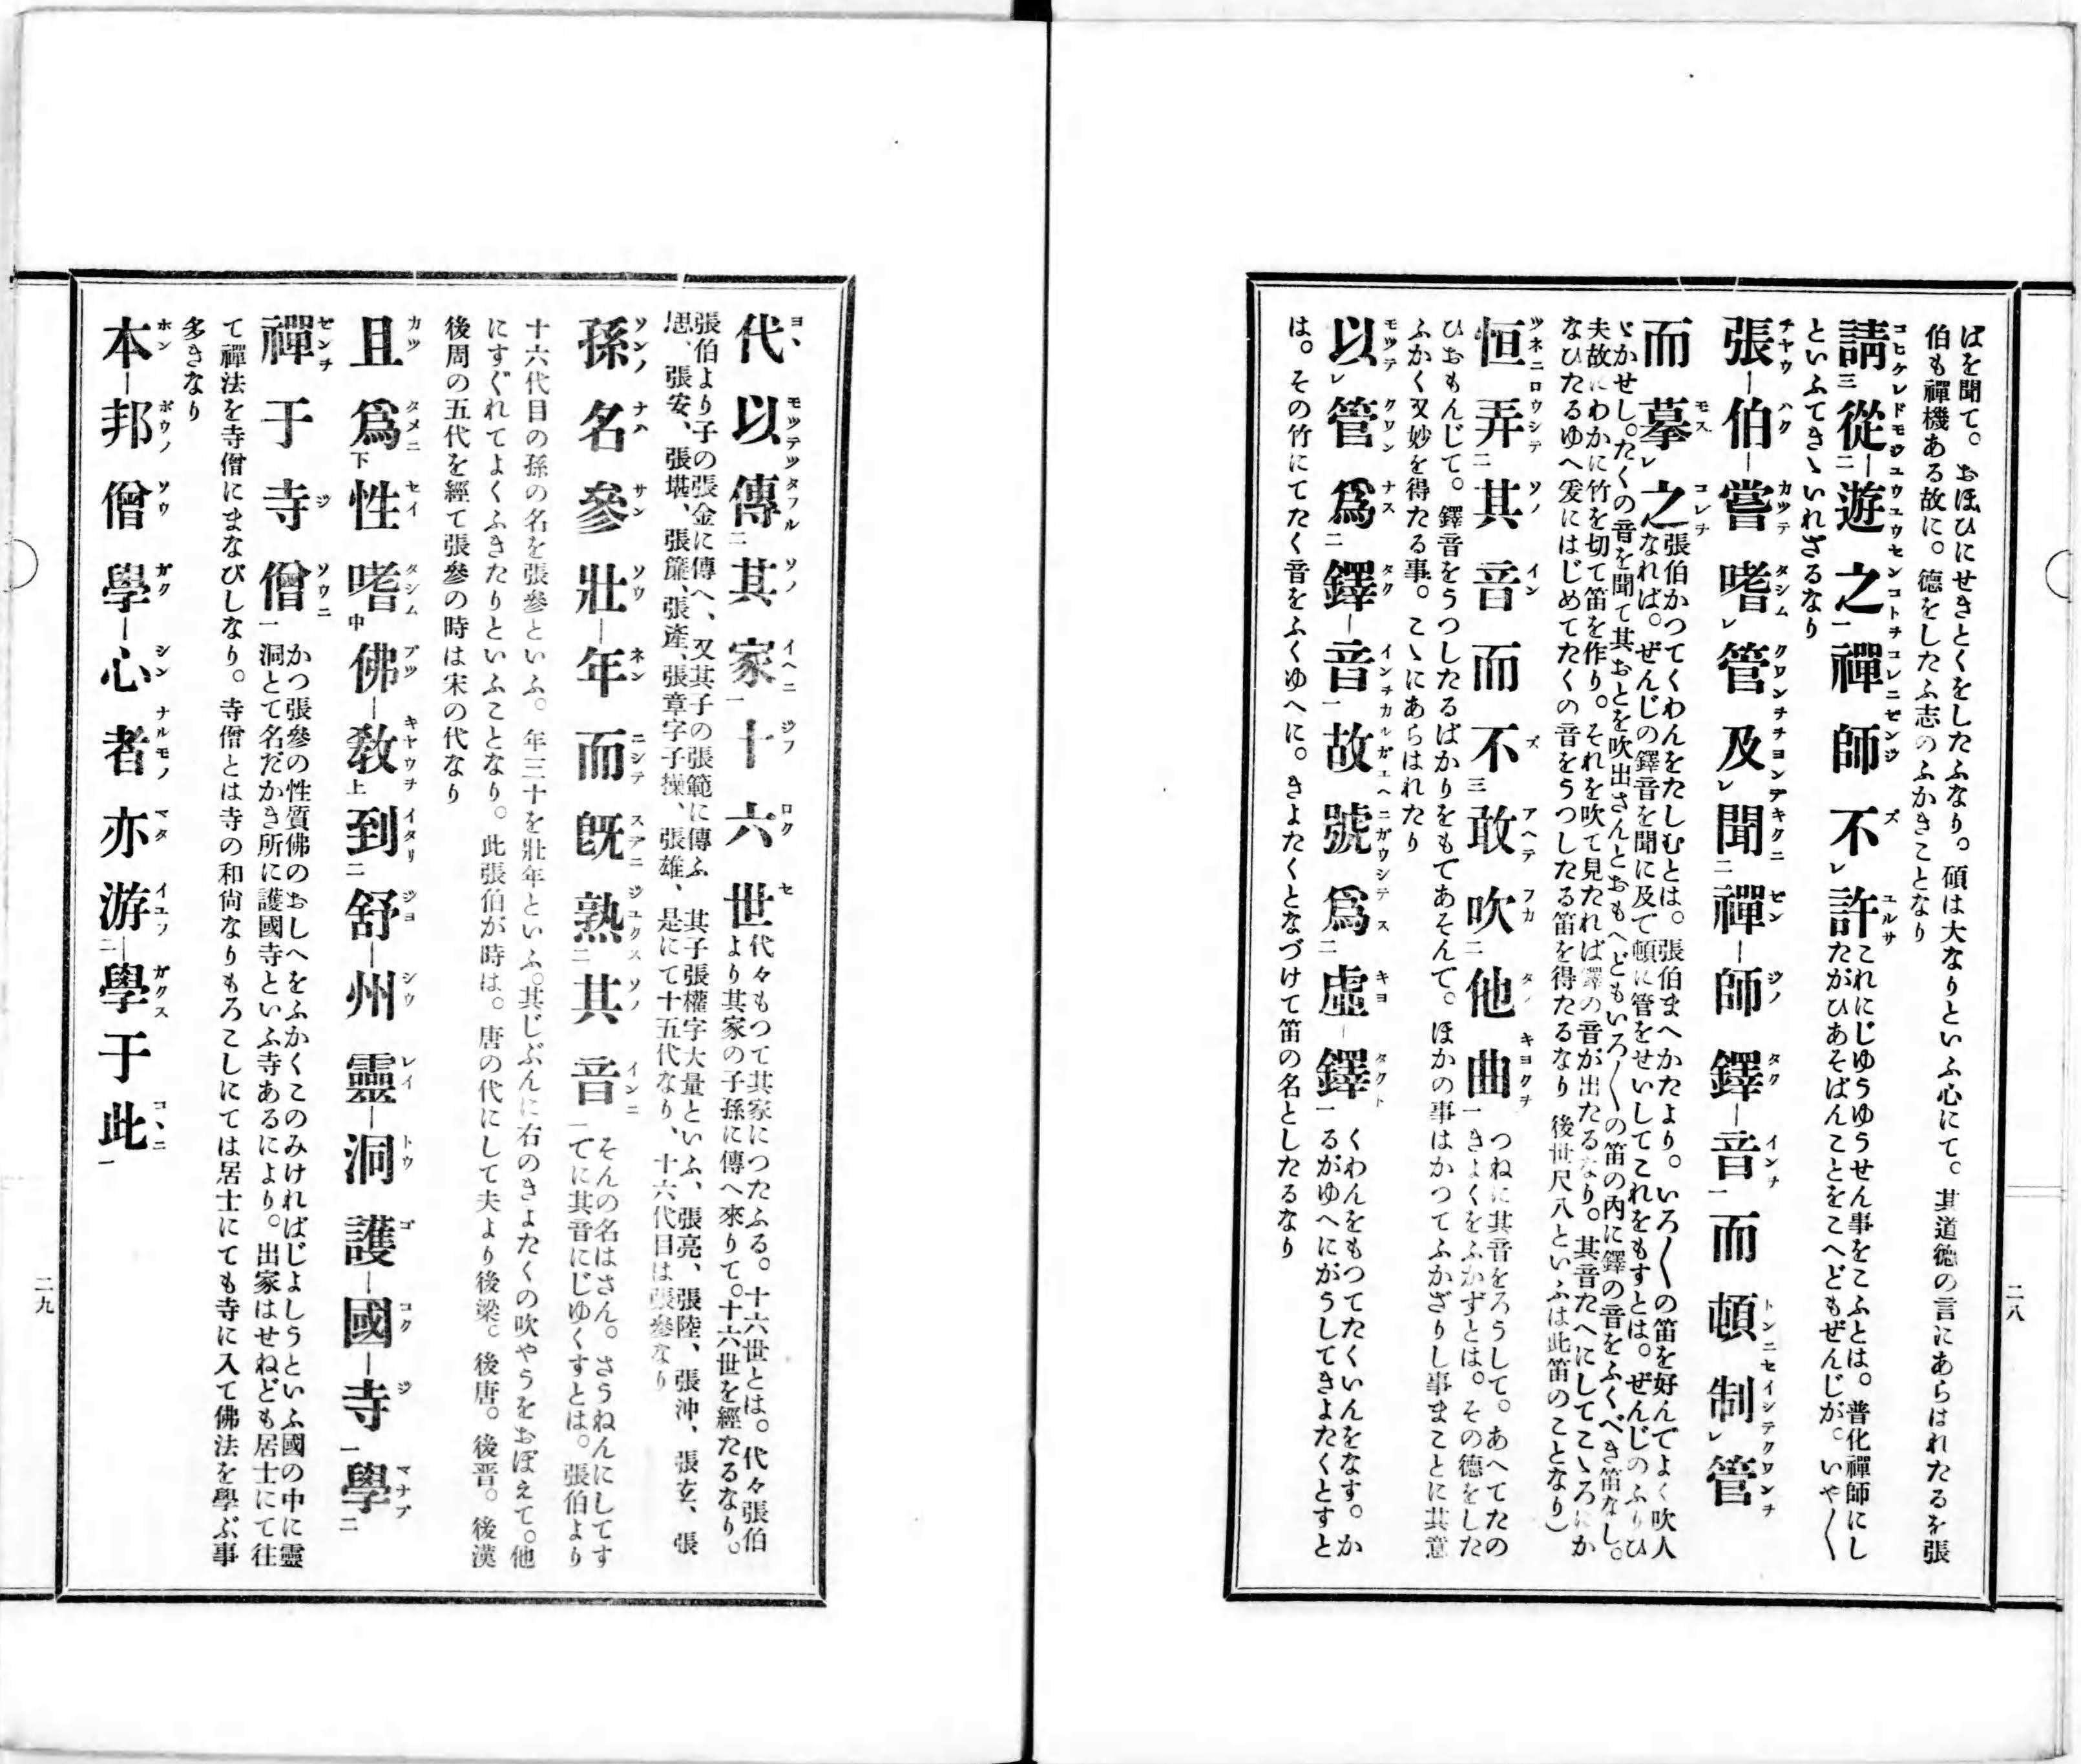 ばを聞て。おほひにせきとくをしたふなり。碩は大なりといふ心にて。其道德の言にあらはれたるを張
伯も禪機ある故に。德をしたふ志のふかきことなり
請三從二遊之一禪師不レ許これにじゆうゆうせん事をこふとは。普化禪師にし
たがひあそばんことをこへどもぜんじが。いや〱
といふてきゝいれざるなり
張伯嘗嗜レ管及レ聞二禪師鐸音一而頓制レ管
而摹レ之張伯かつてくわんをたしむとは。張伯まへかたより。いろ〱の笛を好んでよく吹人
なれば。ぜんじの鐸音を聞に及て頓に管をせいしてこれをもすとは。ぜんじのふりひ
ゞかせし。たくの音を聞て其おとを吹出さんとおもへどもいろ〱の笛の內に鐸の音をふくべき笛なし。
夫故にわかに竹を切て笛を作り。それを吹て見たれば鐸の音が出たるなり。其音たへにしてこゝろにか
なひたるゆへ爰にはじめてたくの音をうつしたる笛を得たるなり 後世尺八といふは此笛のことなり)
恒弄二其音而不三敢吹二他曲一つねに其音をろうして。あへてたの
きよくをふかずとは。その德をした
ひおもんじて。鐸音をうつしたるばかりをもてあそんて。ほかの事はかつてふかざりし事まことに其意
ふかく又妙を得たる事。こゝにあらはれたり
以レ管爲二鐸音一故號爲二虛鐸一くわんをもつてたくいんをなす。か
るがゆへにがうしてきよたくとすと
は。その竹にてたく音をふくゆへに。きよたくとなづけて笛の名としたるなり
二八
代以傳二其家一十六世代々もつて其家につたふる。十六世とは。代々張伯
より其家の子孫に傳へ來りて。十六世を經たるなり。
張伯より子の張金に傳へ、又其子の張範に傳ふ 其子張權字大量といふ、張亮、張陸、張沖、張玄、張
思、張安、張堪、張簾、張產、張章字子操、張雄、是にて十五代なり、十六代目は張參なり
孫名參壯年而旣熟二其音一そんの名はさん。さうねんにしてす
てに其音にじゆくすとは。張伯より
十六代目の孫の名を張參といふ。年三十を壯年といふ。其じぶんに右のきよたくの吹やうをおぼえて。他
にすぐれてよくふきたりといふことなり。此張伯が時は。唐の代にして夫より後梁。後唐。後晋。後漢
後周の五代を經て張參の時は宋の代なり
且爲下性嗜中佛敎上到二舒州靈洞護國寺一學二
禪于寺僧一かつ張參の性質佛のおしへをふかくこのみければじよしうといふ國の中に靈
洞とて名だかき所に護國寺といふ寺あるにより。出家はせねども居士にて往
て禪法を寺僧にまなびしなり。寺僧とは寺の和尙なりもろこしにては居士にても寺に入て佛法を學ぶ事
多きなり
本邦僧學心者亦游二學于此一
二九